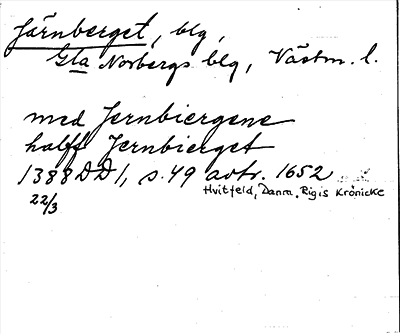 Järnberget, blg,
Gla Norbergs blg, Västm. l.
med Jernbiergene
halff Jernbierget
1388 DD 1, s. 49 avtr. 1652
Hvitfeld, Danm. Rigis Krönicke
22/3